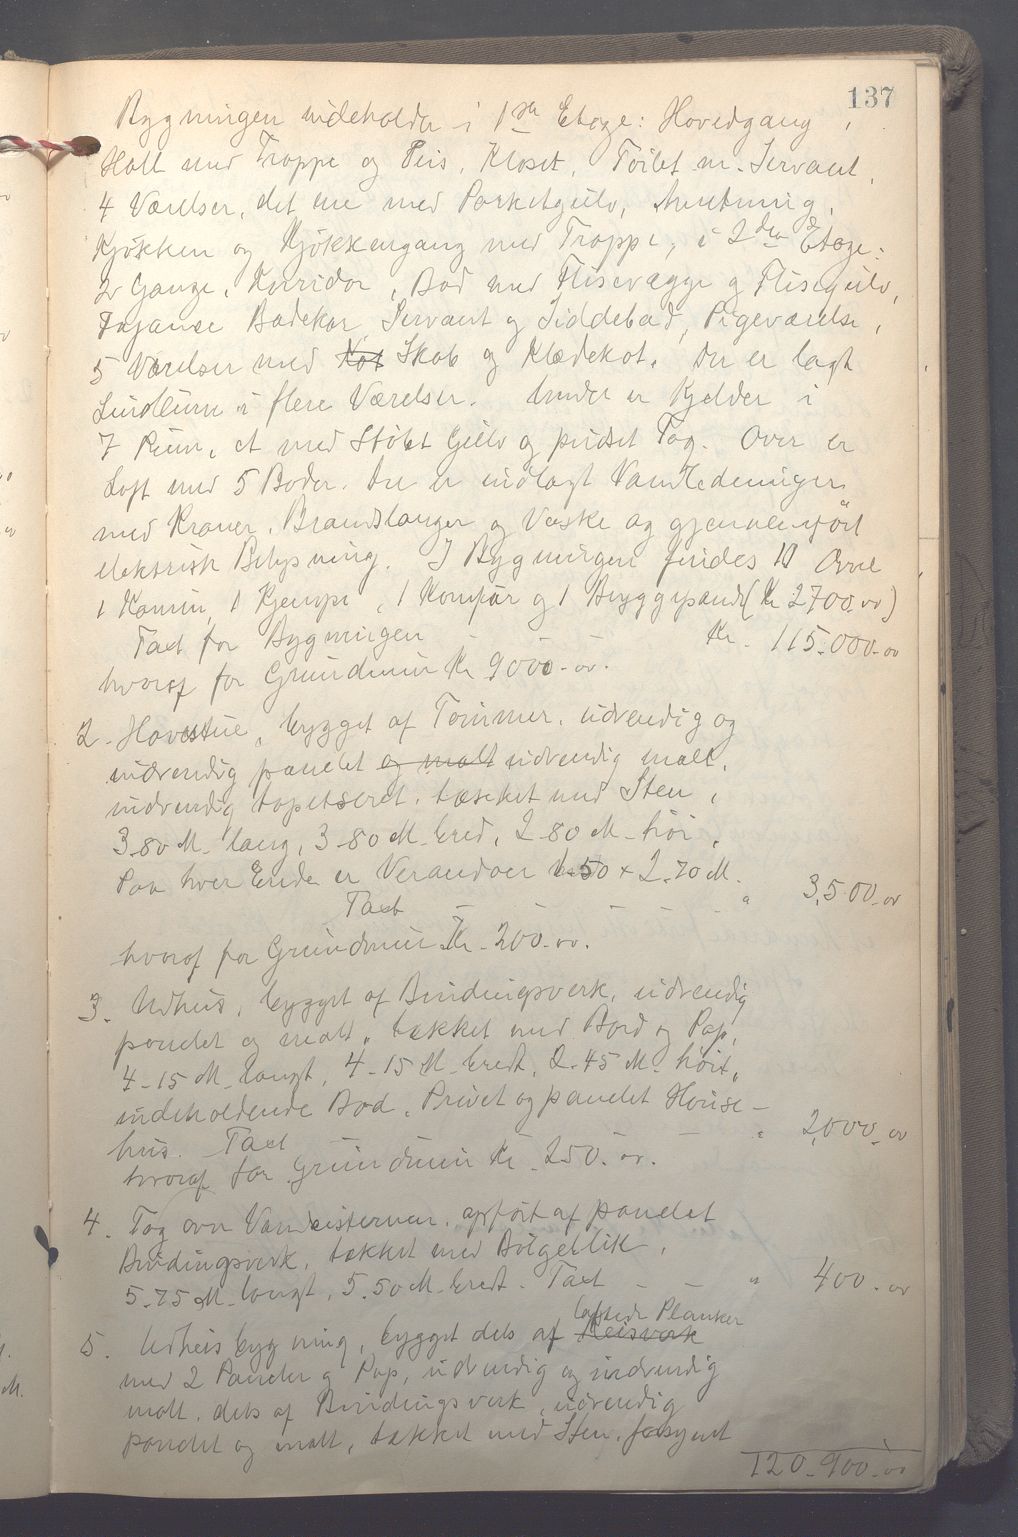 137
Bygningen indeholder i 1ste Etage: Hovedgang,
Hall med Trappe og Peis, Kloset, Toilet m. Servant,
4 Værelser, det ene med Parketgulv, Anretning,
Kjøkken og Kjøkkengang med Trappe, i 2den Etage:
2 Gange, Korridor, Bad med Flisevægge og Flisegulv,
Fajanse Badekar, Servant og Siddebad, Pigeværelse,
5 Værelser med Kot Skab og Klædekot. Der er lagt
Linolium i flere Værelser. Under er Kjelder i
7 Rum, et med Støbt Gulv og pudset Tag. Over er
Loft med 5 Boder. Der er indlagt Vandledninger
med Kraner, Brandslanger og Vaske og gjennemført
elektrisk Belysning. I Bygningen findes 10 Ovne
1 Kamin, 1 Kjempe, 1 Komfur og 1 Bryggepande (Kr 2700.00)
Taxt for Bygningen - - - Kr. 115.000.00
hvoraf for Grundmur Kr 9000.00.
2. Havestue, bygget af Tømmer, udvendig og
indvendig panelet og malt udvendig malt,
indvendig tapetseret, tækket med Sten,
3.80 M. lang, 3.80 M bred, 2.80 M. høi,
Paa hver Ende er Verandaer 1.50 x 2.70 M.
Taxt - - - - - " 3,500.00
hvoraf for Grundmur Kr. 200.00.
3. Udhus, bygget af Bindingsverk, udvendig
panelet og malt, tækket med Bord og Pap,
4.15 M. langt, 4.15 M. bredt, 2.45 M. høit,
indeholdende Bod, Privet og panelet Hønse-
hus. Taxt - - - " 2,000.00
hvoraf for Grundmur Kr. 250.00.
4. Tag over Vandcisternen, opført af panelet
Bindingsverk, tækket med Bølgeblik,
5.75 M. langt, 5.50 M. bredt. Taxt - - " 400.00
laftede Planker
5. Udhusbygning, bygget dels af Reisverk
med 2 Paneler og Pap, udvendig og indvendig
malt, dels af Bindingsverk, udvendig
panelet og malt, tækket med Sten, forsynet
120.900.00